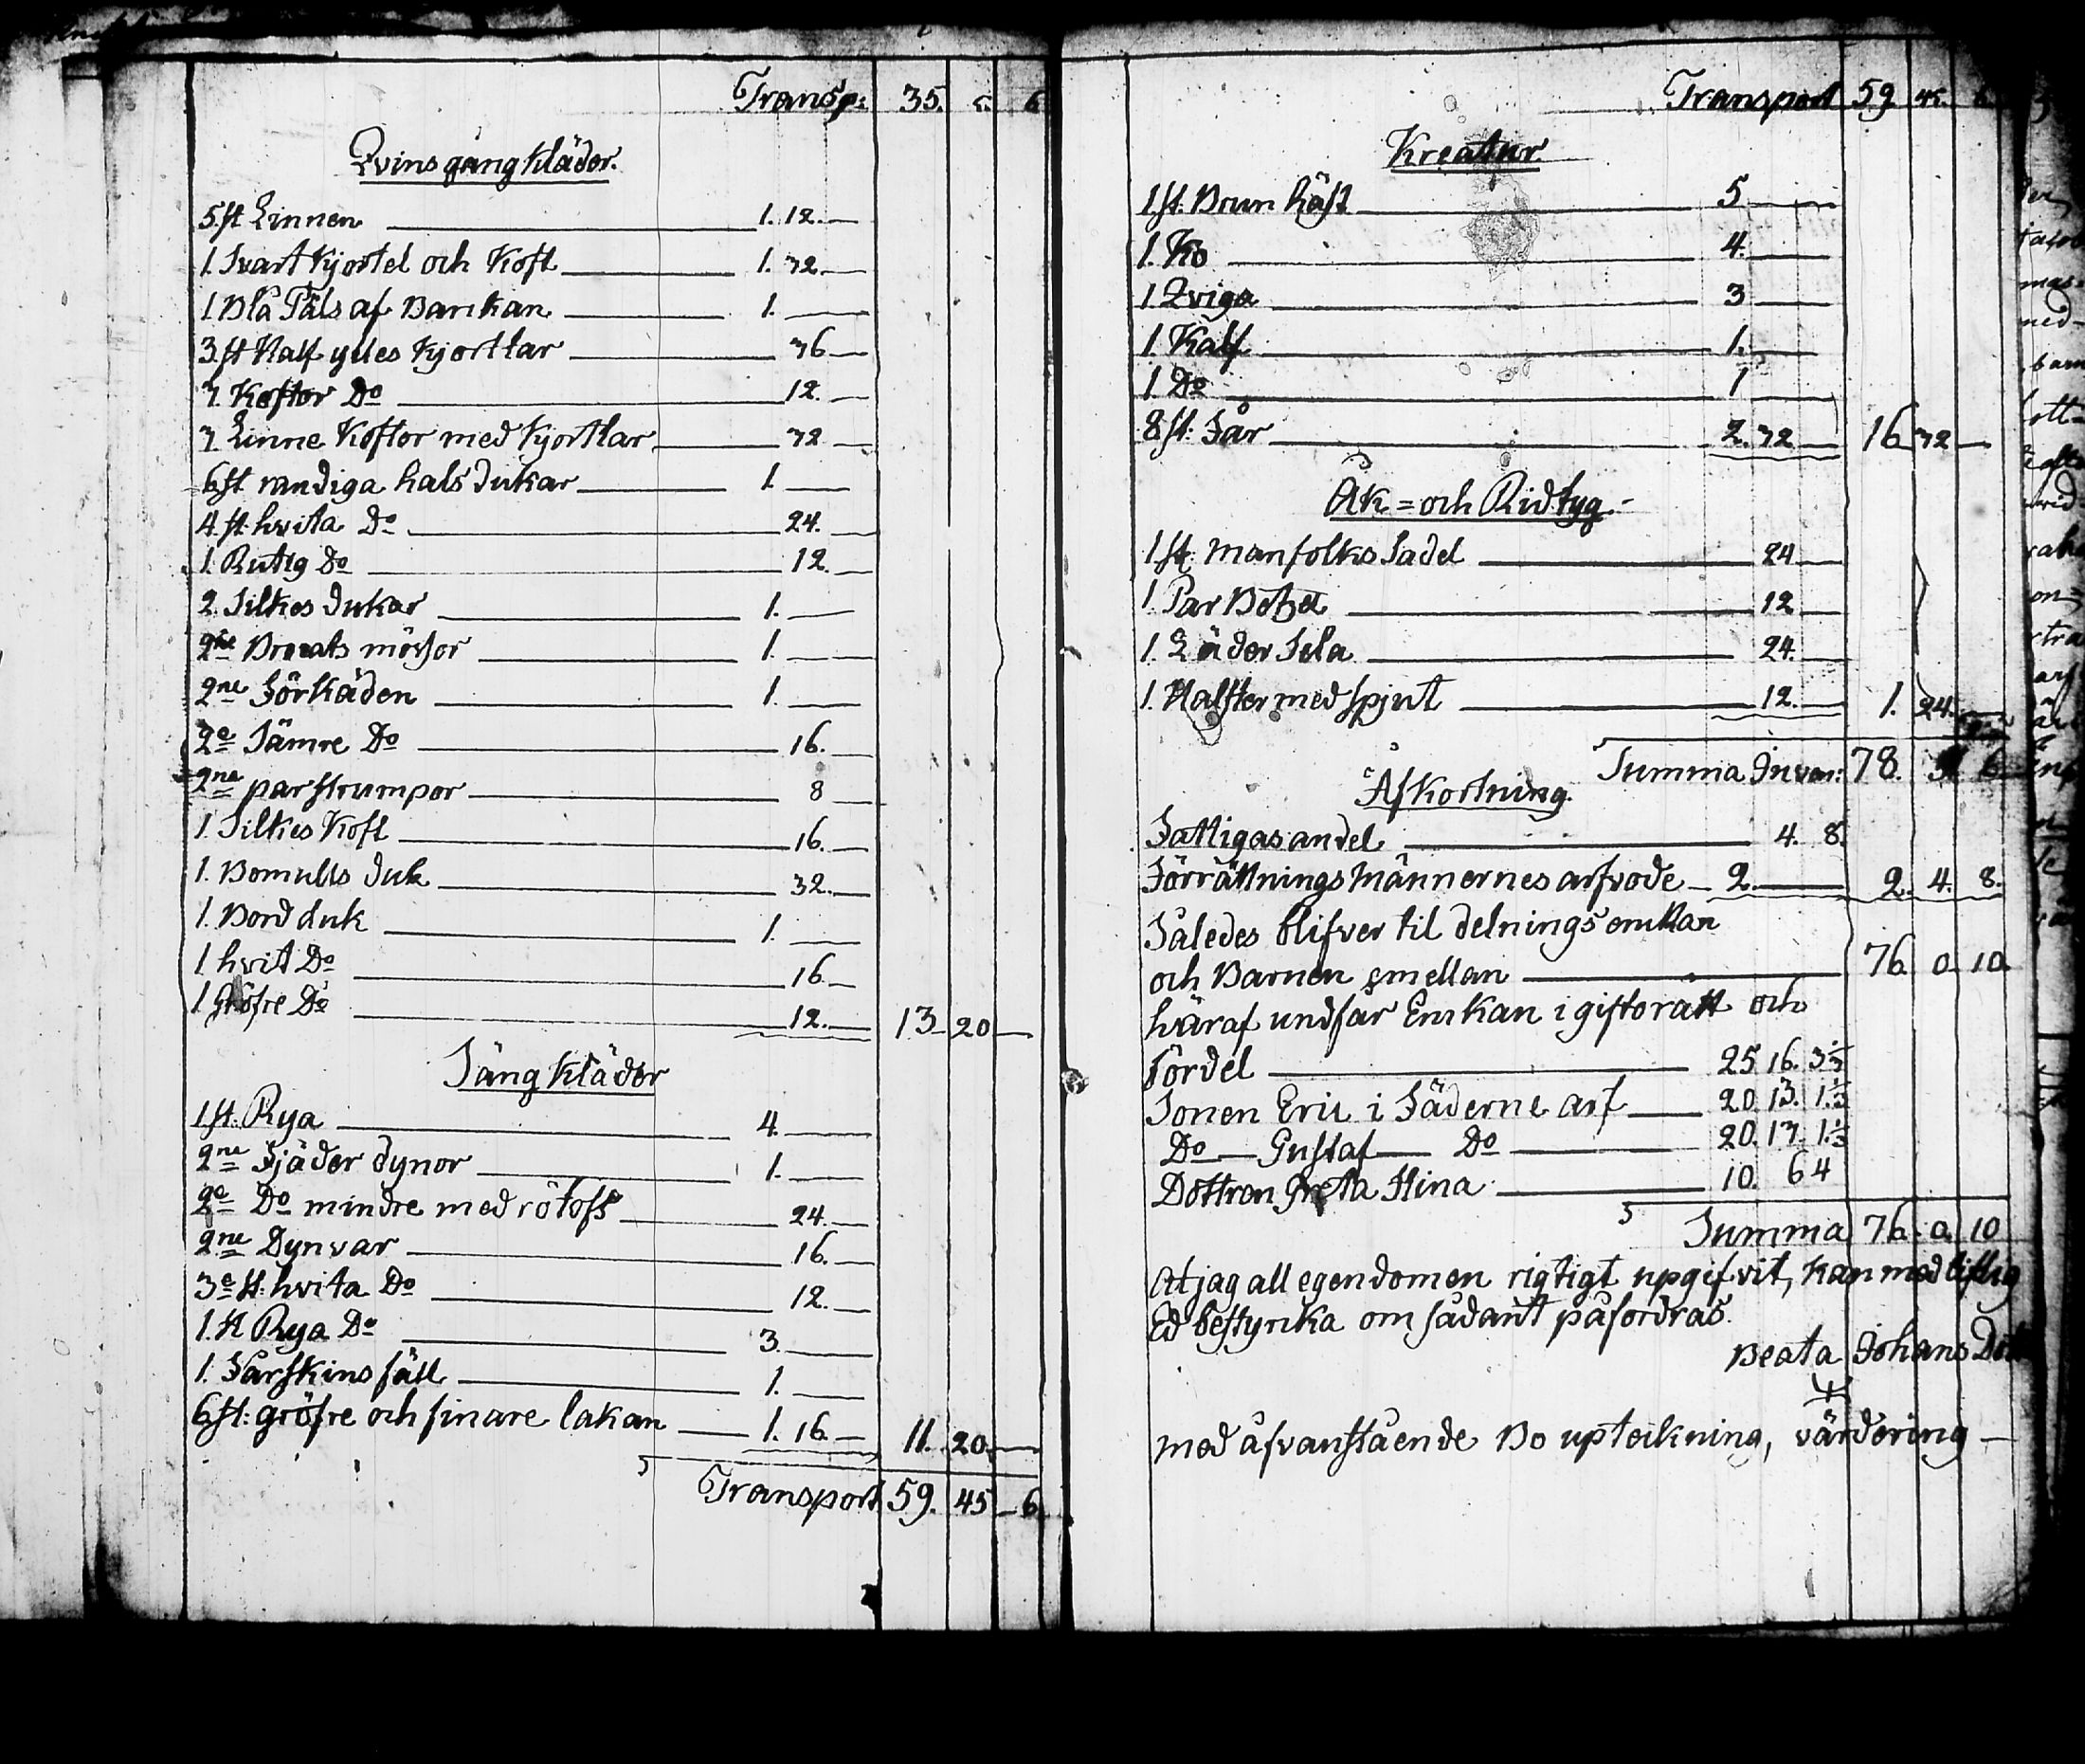 Transp: 35. 5. 6
Qvinsgångkläder.
5. st Linnen 1. 12.
1. Svart Kjortel och Koft 1. 32
1. Blå Päls af Barrkan 1.
3. st Half ylles Kjortlar 36
3. Koftor Do 12.
3. Linne Koftor med Kjortlar 32
6 st randiga halsdukar 1.
4. st. hvita Do 24.
1. Rutig Do 12.
2. Silkes dukar 1.
2ne Bonats mössor 1.
2ne Förkäden 1.
2e Sämre Do 16.
2ne par strumpor 8
1. Silkes Koft 16.
1. Bomulls duk 32.
1. Bord duk 1.
1 hvit Do 16.
1 Gröfre Do 12. 13 20
Sängkläder
1 st. Rya 4.
2ne Fjäder dynor 1.
2e Do mindre med rötofs 24.
2ne Dynvar 16.
3e st: hvita Do 12.
1. st Rya Do 3.
1. Fårskins fäll 1.
6 st: gröfre och finare lakan 1. 16. 11. 20.
Transport 59. 45 6
Transport 59 45. 6
Kreatur
1 st. Brun häst 5
1. Ko 4.
1 Qviga 3
1. Kalf 1.
1 Do 1
8 st: Får 2. 32 16 32
Åk= och Ridtyg
1 st. manfolks Sadel 24
1. Par Betzel 12
1. Läder Sela 24.
1. Halfter med spjut 12. 1. 24.
Summa Inven: 78. 6
Afkortning.
Fattigas andel 4. 8.
Förrättnings Männernes arfvode 2. 2. 4. 8.
Således blifver til delnings enkan
och Barnen emellan 76. 0. 10.
häraf undfår Enkan i giftorätt och
fördel 25 16. 3 1/3
Sonen Eric i Fäderne arf 20 13. 1. 1/3
Do Gustaf Do 20. 13. 1. 1/3
Dottren Greta Stina 10. 6 4
Summa 76. 0. 10
At jag all egendomen rigtigt upgifvit, kan med liflig
Ed bestyrka om sådant påfordras.
Beata Johans Dott
med åfvanstående Bo upteckning, värdering